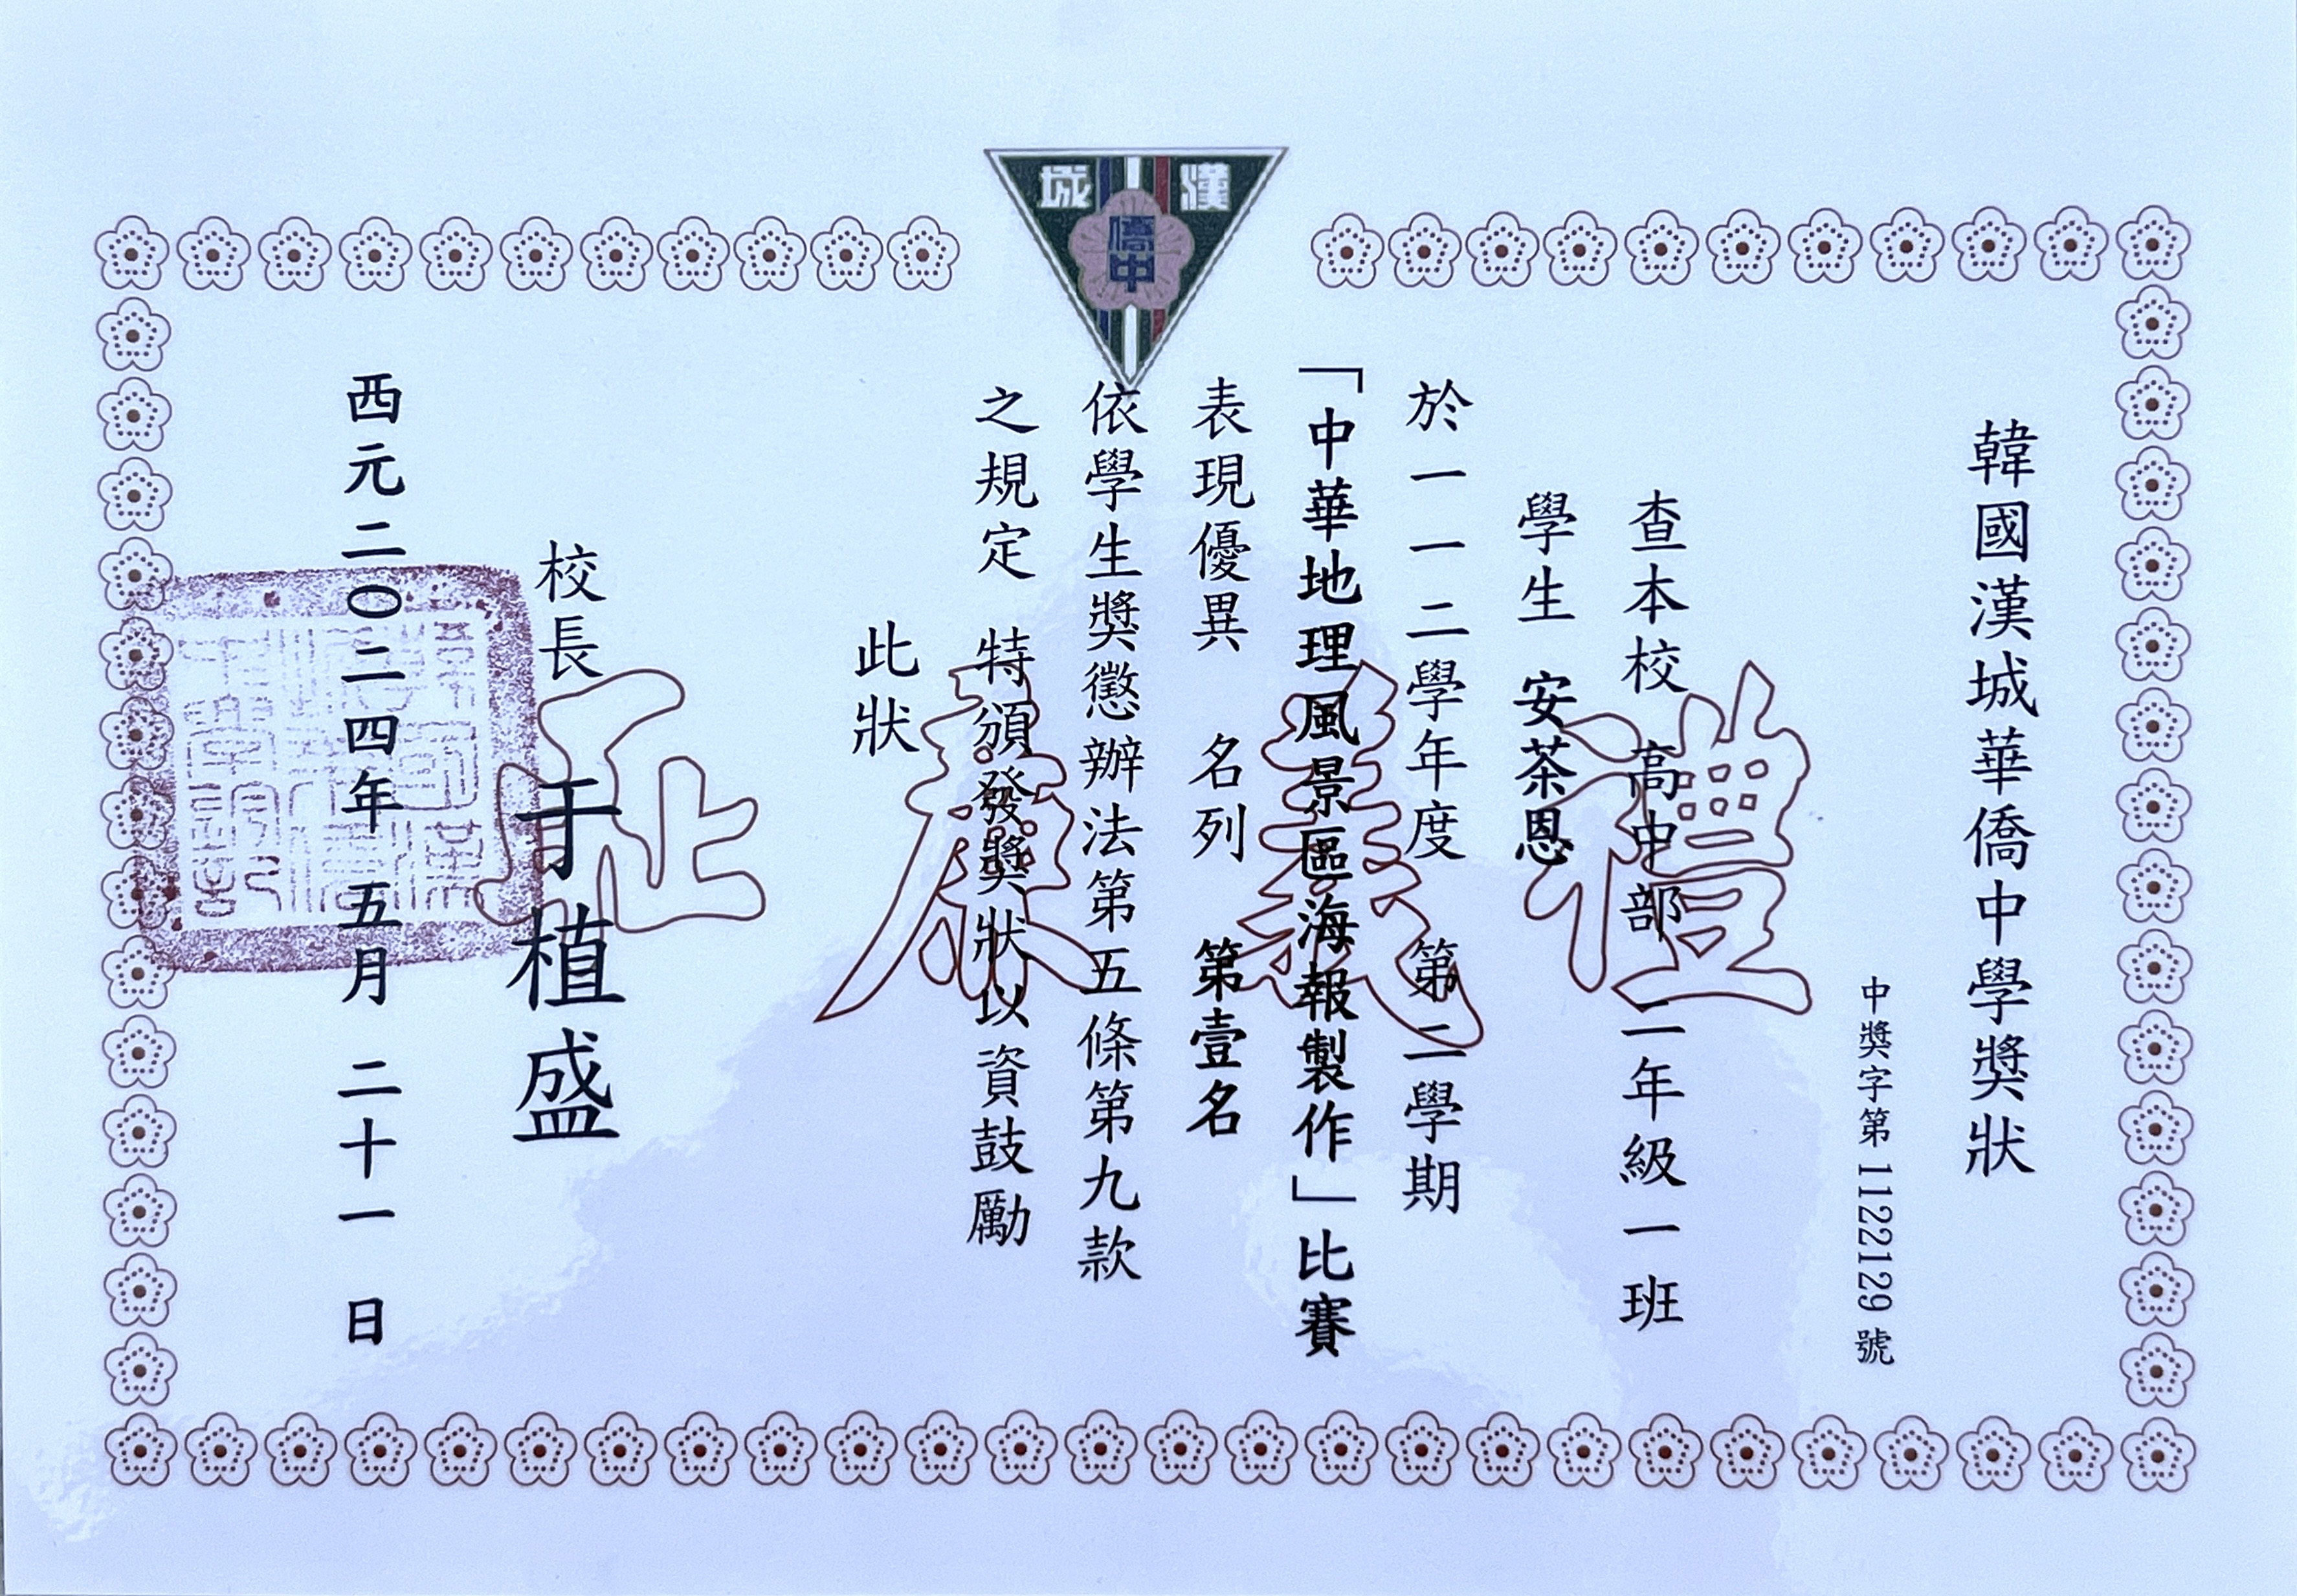 漢城
僑中
韓國漢城華僑中學獎狀
中獎字第1122129號
查本校 高中部 二年級一班
學生 安茶恩
於一一二學年度 第二學期
「中華地理風景區海報製作」比賽
表現優異 名列 第壹名
依學生獎懲辦法第五條第九款
之規定 特頒發獎狀以資鼓勵
此狀
校長 于植盛
西元二〇二四年 五月 二十一 日
禮義廉恥